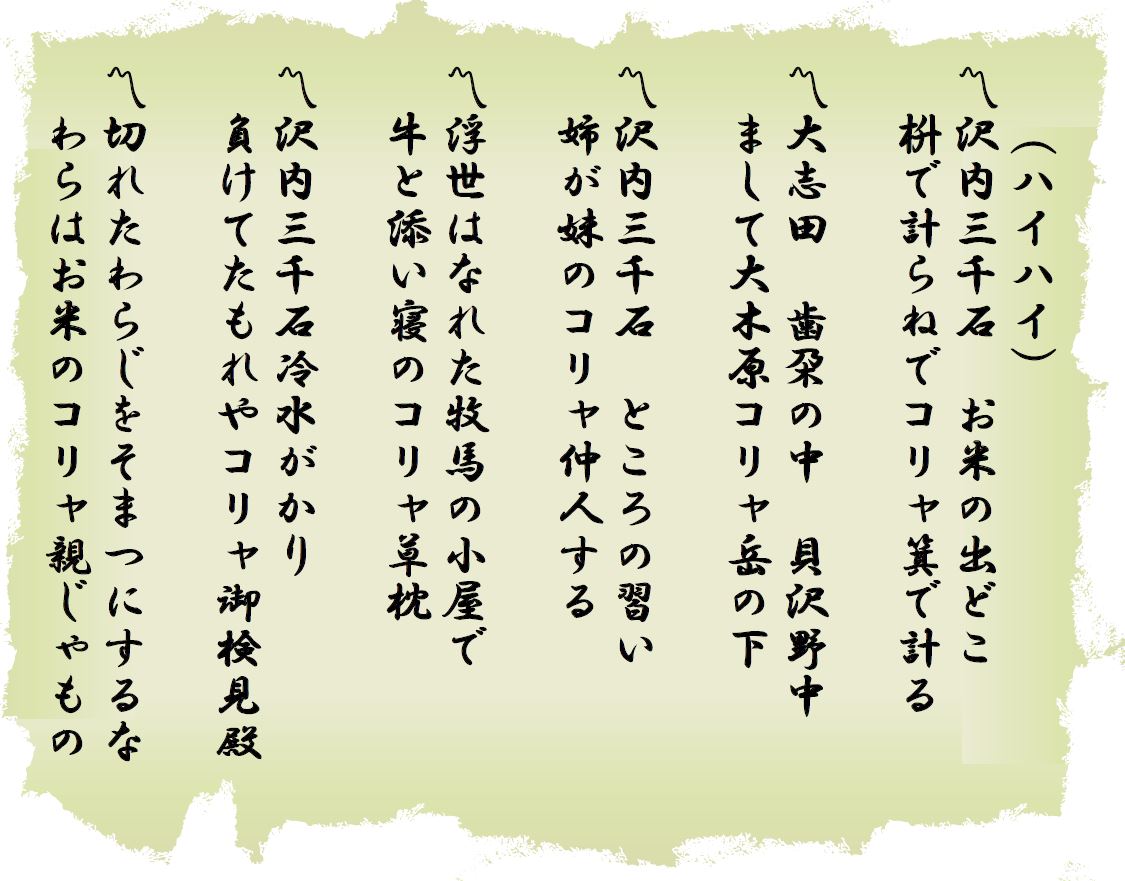 （ハイハイ）
〽沢内三千石　お米の出どこ
枡で計らねでコリャ箕で計る
〽大志田　歯朶の中　貝沢野中
まして大木原コリャ岳の下
〽沢内三千石　ところの習い
姉が妹のコリャ仲人する
〽浮世はなれた牧馬の小屋で
牛と添い寝のコリャ草枕
〽沢内三千石冷水がかり
負けてたもれやコリャ御検見殿
〽切れたわらじをそまつにするな
わらはお米のコリャ親じゃもの